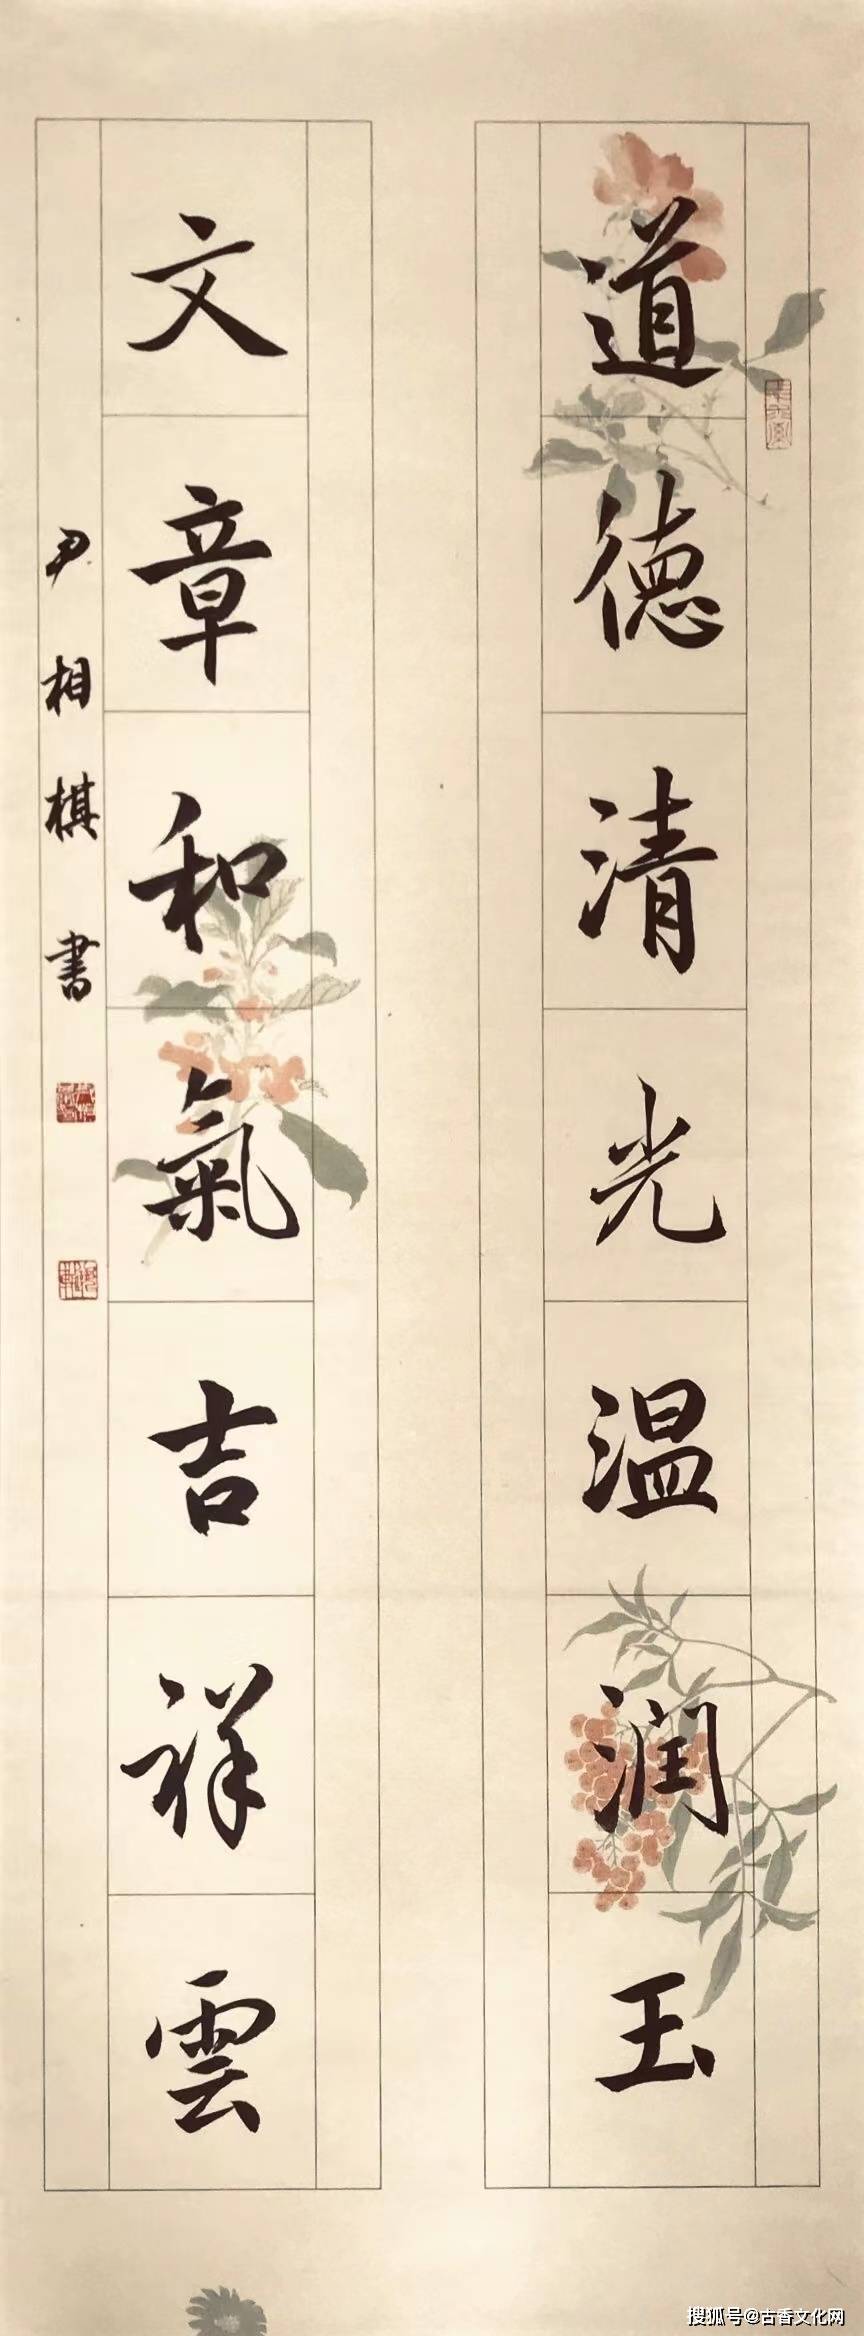 道德清光温润玉
文章和氣吉祥雲
尹相棋書
搜狐号@古香文化网